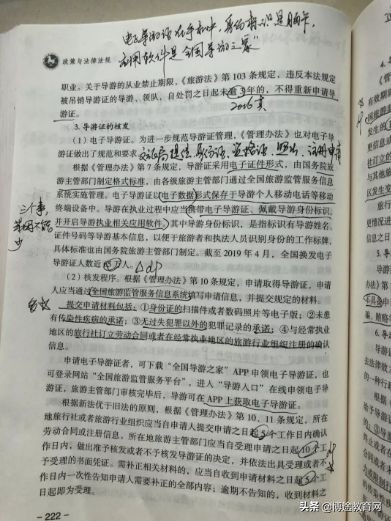 政策与法律法规
职业。关于导游的从业禁止期限，《旅游法》第 103 条规定，违反本法规定
被吊销导游证的导游、领队，自处罚之日起未逾3年的，不得重新申请导
游证。
2016真
3. 导游证的核发
（1）电子导游证。为进一步规范导游证管理，《管理办法》也对电子导
游证做出了规范和要求
根据《管理办法》第 7 条规定，导游证采用电子证件形式，由国务院旅
游主管部门制定格式标准，由各级旅游主管部门通过全国旅游监管服务信息
系统实施管理。电子导游证以电子数据形式保存于导游个人移动电话等移动
终端设备中。导游在执业过程中应当携带电子导游证、佩戴导游身份标识，
并开启导游执业相关应用软件。其中导游身份标识，是指标识有导游姓名、
证件号码等导游基本信息，以便于旅游者和执法人员识别身份的工作标牌，
具体标准也由国务院旅游主管部门制定。截至 2019 年 4 月，全国换发电子
导游证人数近
（2）核发程序。根据《管理办法》第 10 条规定，申请取得导游证，申请
人应当通过全国旅游监管服务信息系统填写申请信息，并提交规定的材料。
提交申请材料包括：①身份证的扫描件或者数码照片等电子版；②未患
有传染性疾病的承诺；③无过失犯罪以外的犯罪记录的承诺；④与经常执业
地区的旅行社订立劳动合同或者在经常执业地区的旅游行业组织注册的确认
信息。
申请电子导游证者，可下载“全国导游之家”APP 申领电子导游证，也
可登录网站“全国旅游监管服务平台”，进入“导游入口”在线申领电子导
游证，旅游主管部门审核完毕后，导游可在 APP 上获取电子导游证。
根据新法优于旧法的原则，根据《管理办法》第 10、11 条规定，所在
地旅行社或者旅游行业组织应当自申请人提交申请之日起5个工作日内确认
劳动合同或注册信息，所在地旅游主管部门应当自受理申请之日起10个工
作日内，做出准予核发或者不予核发导游证的决定，并依法出具受理或者不
予受理的书面凭证。需补正相关材料的，应当自收到申请材料之日起5个工
作日内一次性告知申请人需要补正的全部内容；逾期不告知的，收到材料之
日起即为受理。
-222-
头条 @博途教育网